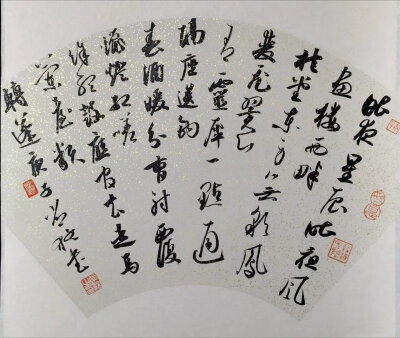 昨夜星辰昨夜風
畫樓西畔
桂堂東身無彩鳳
雙飛翼心
有靈犀一點通
隔座送鈎
春酒暖分曹射覆
蠟燈紅嗟
余聽鼓應官去走馬
蘭臺類
轉蓬庚子